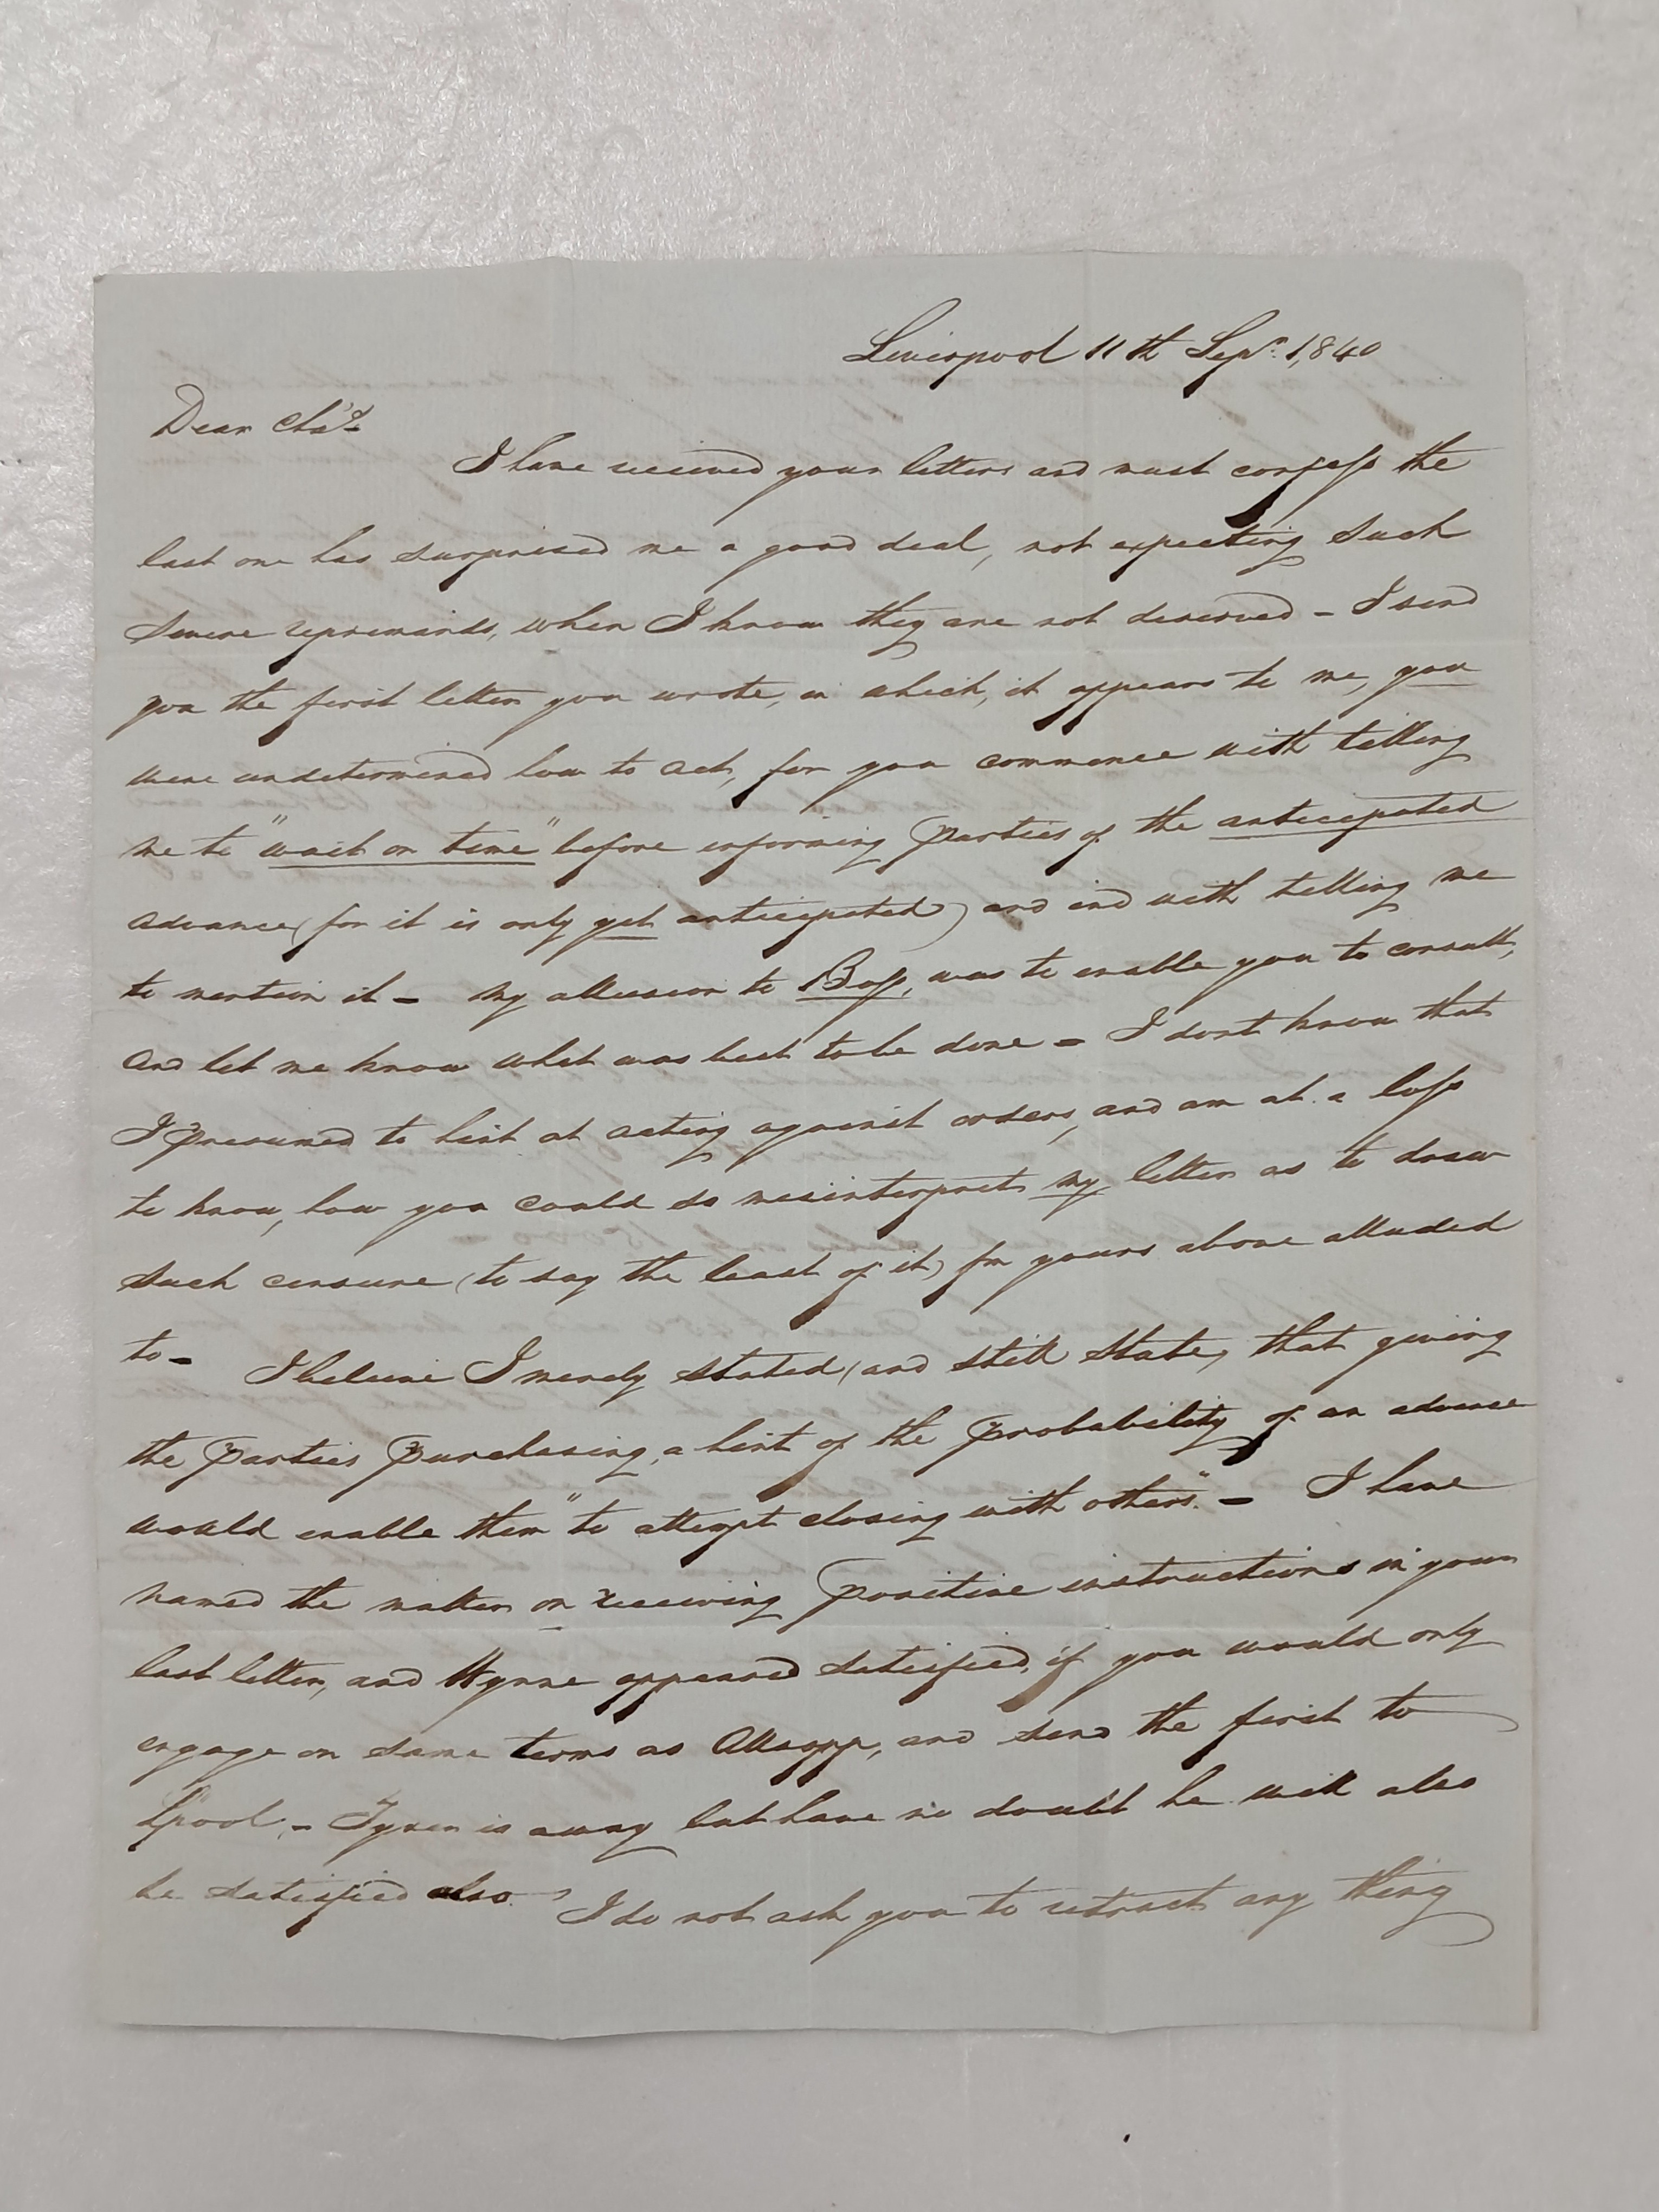 Liverpool 11th Sepr. 1,840
Dear Chas.
I have received your letters and must confess the
last one has surprised me a good deal, not expecting such
severe reprimands, when I know they are not deserved - I send
you the first letter you wrote, in which, it appears to me, you
were undetermined how to act, for you commence with telling
me to "wait on time" before informing Parties of the anticipated
advance (for it is only yet anticipated) and end with telling me
to mention it - My allusion to Bass, was to enable you to consult,
and let me know what was best to be done - I dont know that
I presumed to hint at acting against orders, and am at a loss
to know, how you could so misinterpret my letter as to draw
such censure (to say the least of it) for yours above alluded
to - I believe I merely stated (and still state, that giving
the Parties Purchasing, a hint of the Probability of an advance
would enable them "to attempt closing with others." - I have
named the matter on receiving Positive instructions in your
last letter, and Wynne appeared satisfied, if you would only
engage on same terms as Allsopp, and send the first to
Lpool. - Tyrer is away but have no doubt he will also
be satisfied also. I do not ask you to retract any thing